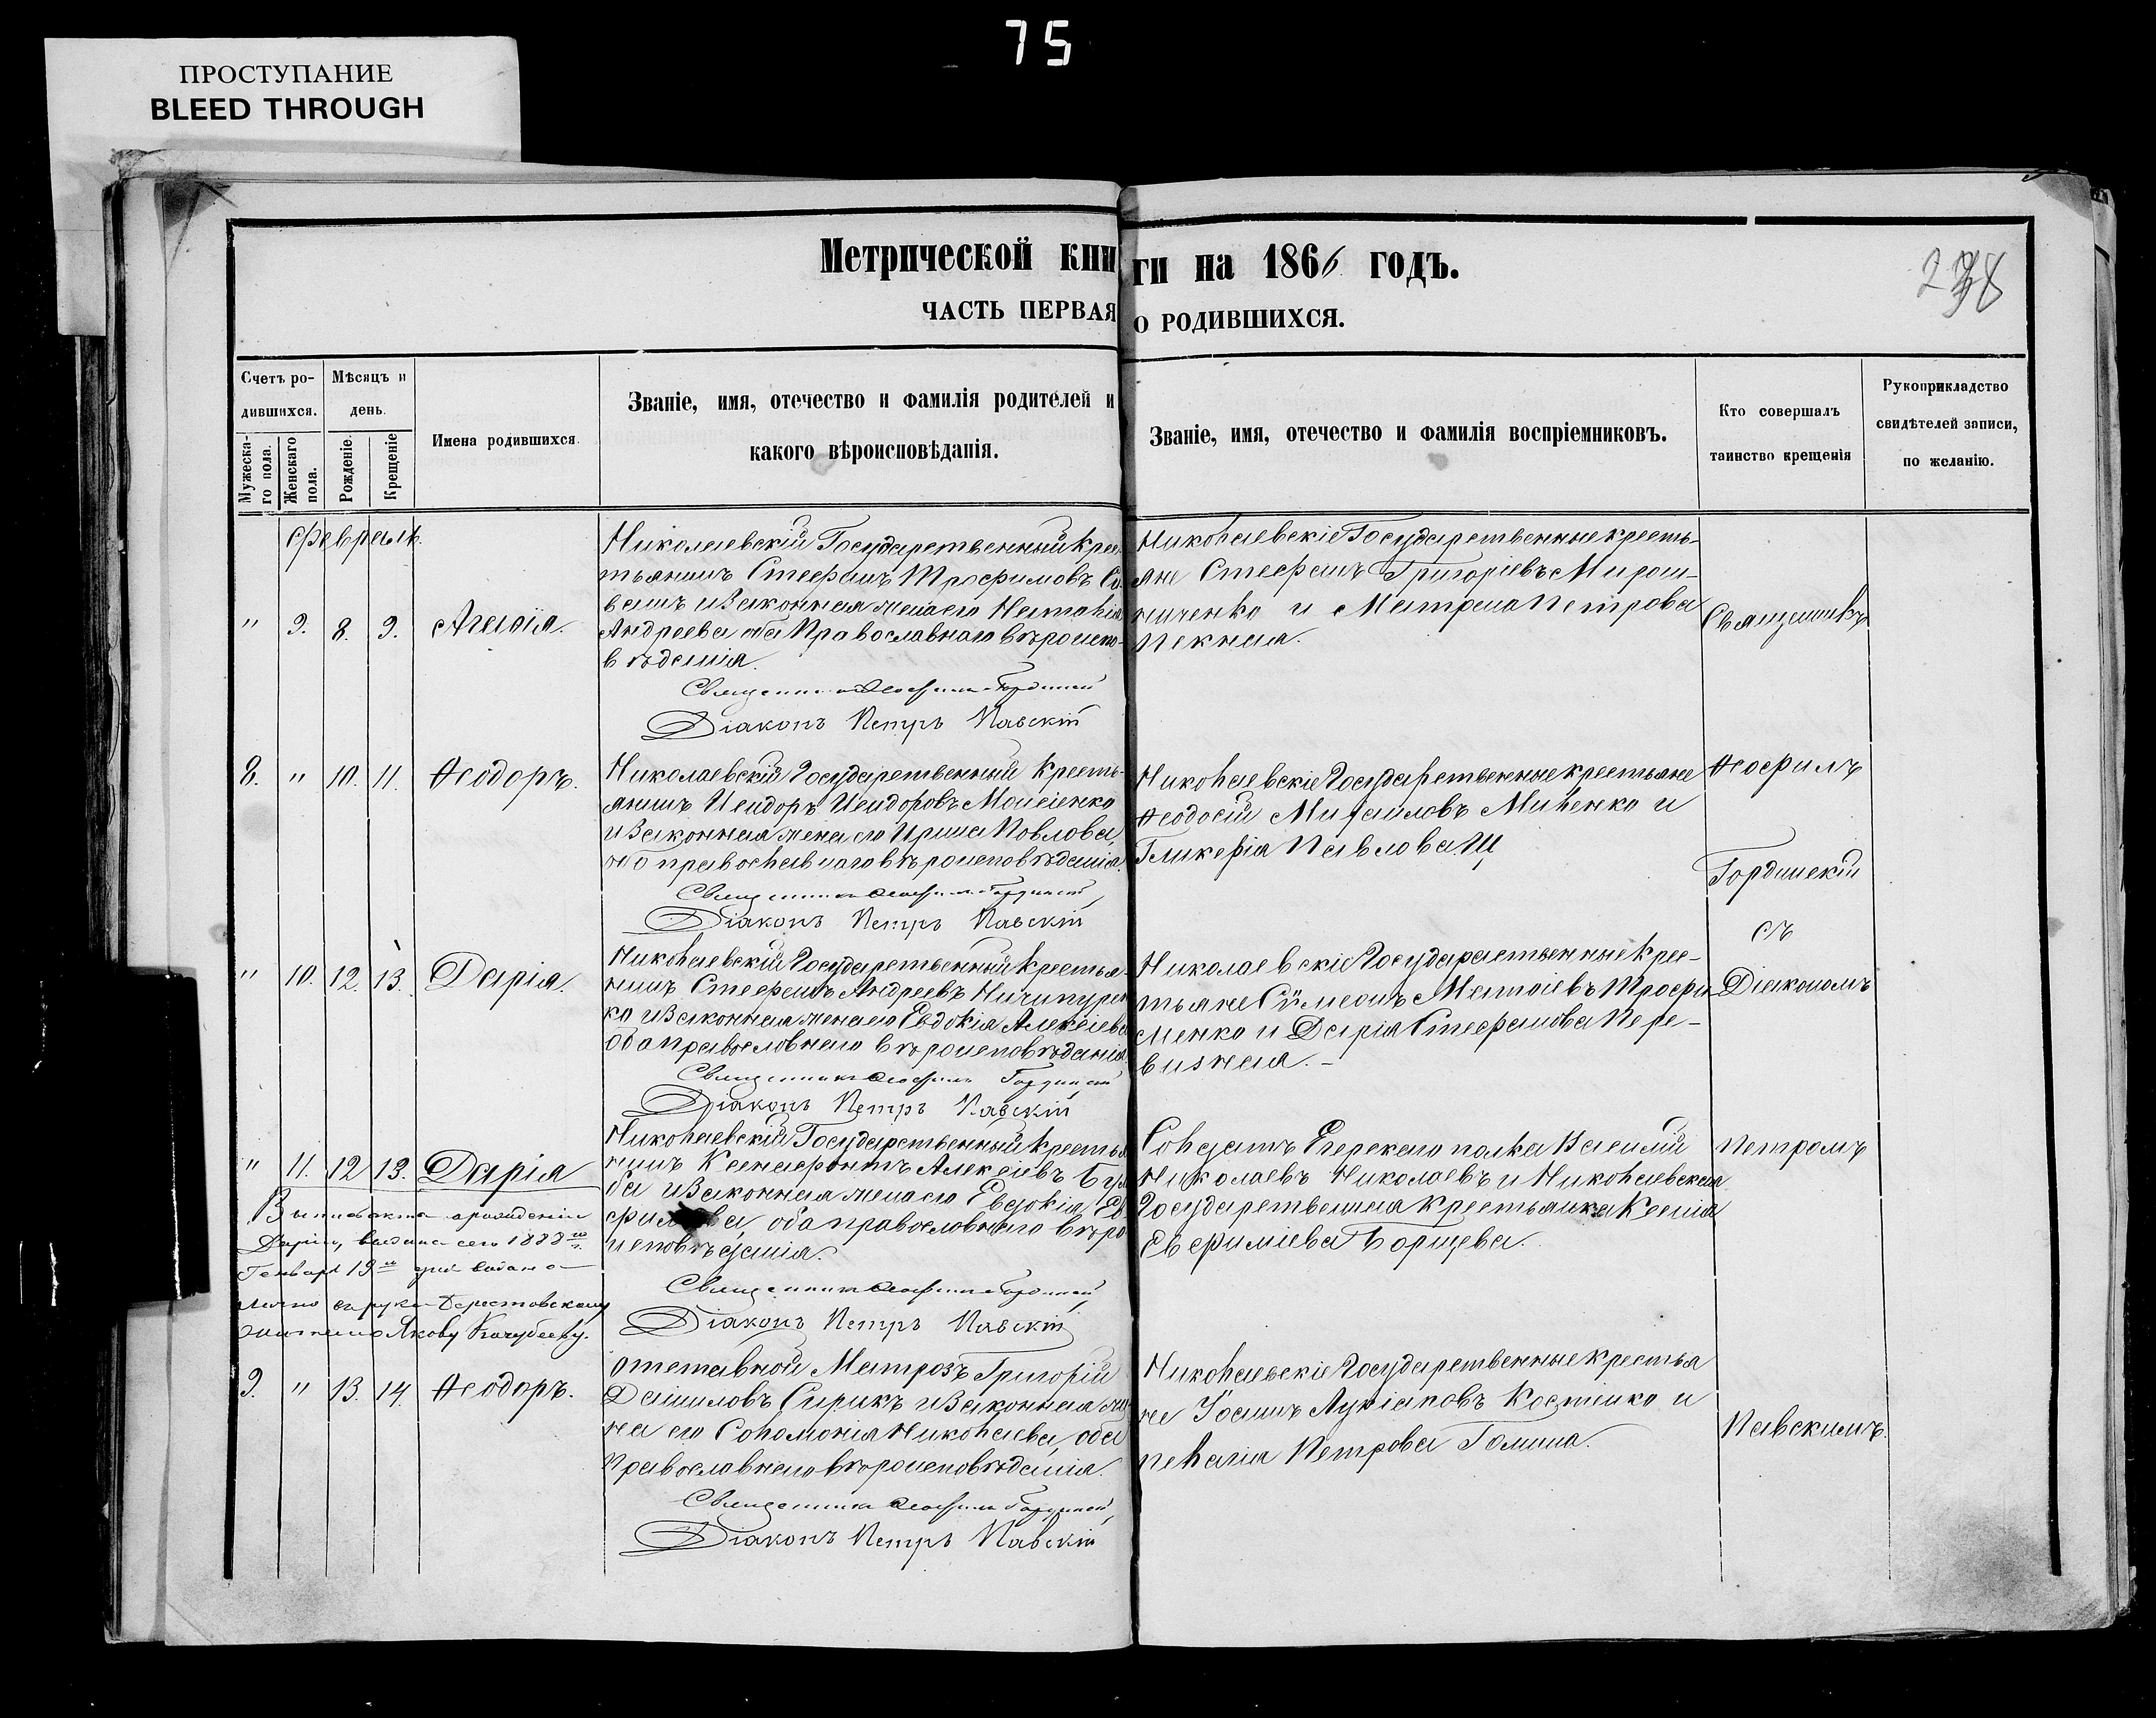 75
ПРОСТУПАНИЕ
BLEED THROUGH
Метрической книги на 1866 годъ.
238
ЧАСТЬ ПЕРВАЯ О РОДИВШИХСЯ.
Счетъ родившихся.
Мужескаго пола.
Женскаго пола.
Мѣсяцъ и день.
Рожденіе.
Крещеніе
Имена родившихся.
Званіе, имя, отечество и фамилія родителей и
какого вѣроисповѣданія.
Званіе, имя, отечество и фамилія воспріемниковъ.
Кто совершалъ
таинство крещенія
Рукоприкладство
свидѣтелей записи,
по желанію.
Февраль.
" 9. 8. 9. Агапія.
Николаевскій Государственный крес-
тьянинъ Стефанъ Трофимовъ
и законная жена его Наталія
Андреева оба Православнаго вѣроиспо-
вѣданія.
Священникъ Ѳеофилъ Гординскій
Діаконъ Петръ Павскій
Николаевскіе Государственные кресть-
яне Стефанъ Григоріевъ Мирош-
ниченко и Матрона Петрова
Пекная.
Священникъ
8. " 10. 11. Ѳеодоръ.
Николаевскій Государственный кресть-
янинъ Исидоръ Исидоровъ Моисіенко
и законная жена его Ирина Павлова,
оба православнаго вѣроисповѣданія.
Священникъ Ѳеофилъ Гординскій
Діаконъ Петръ Павскій
Николаевскіе Государственные крестьяне
Ѳеодосій Михайловъ Миненко и
Гликерія Павлова Щ
Ѳеофилъ
Гординскій
съ
" 10. 12. 13. Дарія.
Николаевскій Государственный крестья-
нинъ Стефанъ Андреевъ Ничипурен
ко и законная жена его Евдокія Алексіева
оба православнаго вѣроисповѣданія.
Священникъ Ѳеофилъ Гординскій
Діаконъ Петръ Павскій
Николаевскіе Государственные крес-
тьяне Сѵмеонъ Матѳіевъ Трофи
менко и Дарія Стефанова Пере-
визная. –
Діакономъ
" 11. 12 13. Дарія
Николаевскій Государственный крестья
нинъ Ксенофонтъ Алексіевъ Бул
ба и законная жена его Евдокія Ев
фимова, оба православнаго вѣро
исповѣданія.
Священникъ Ѳеофилъ Гординскій
Діаконъ Петръ Павскій
Солдатъ Егерскаго полка Василій
Николаевъ Николаевъ и Николаевская
Государственная крестьянка Ксенія
Евфиміева Борщева.
Петромъ
Выпись акта о рожденіи
Даріи, выдана сего 1888 го
Генваря 19 го дня выдана
лично въ руки Берестовскому
жителю Якову Кочубееву.
9. " 13. 14. Ѳеодоръ.
Отставной Матрозъ Григорій
Даниловъ Сирикъ и законная же
на его Соломонія Николаева, оба
православнаго вѣроисповѣданія.
Священникъ Ѳеофилъ Гординскій
Діаконъ Петръ Павскій
Николаевскіе Государственные крестья
не Іоаннъ Лукіановъ Костенко и
Пелагія Петрова Голина.
Павскимъ.